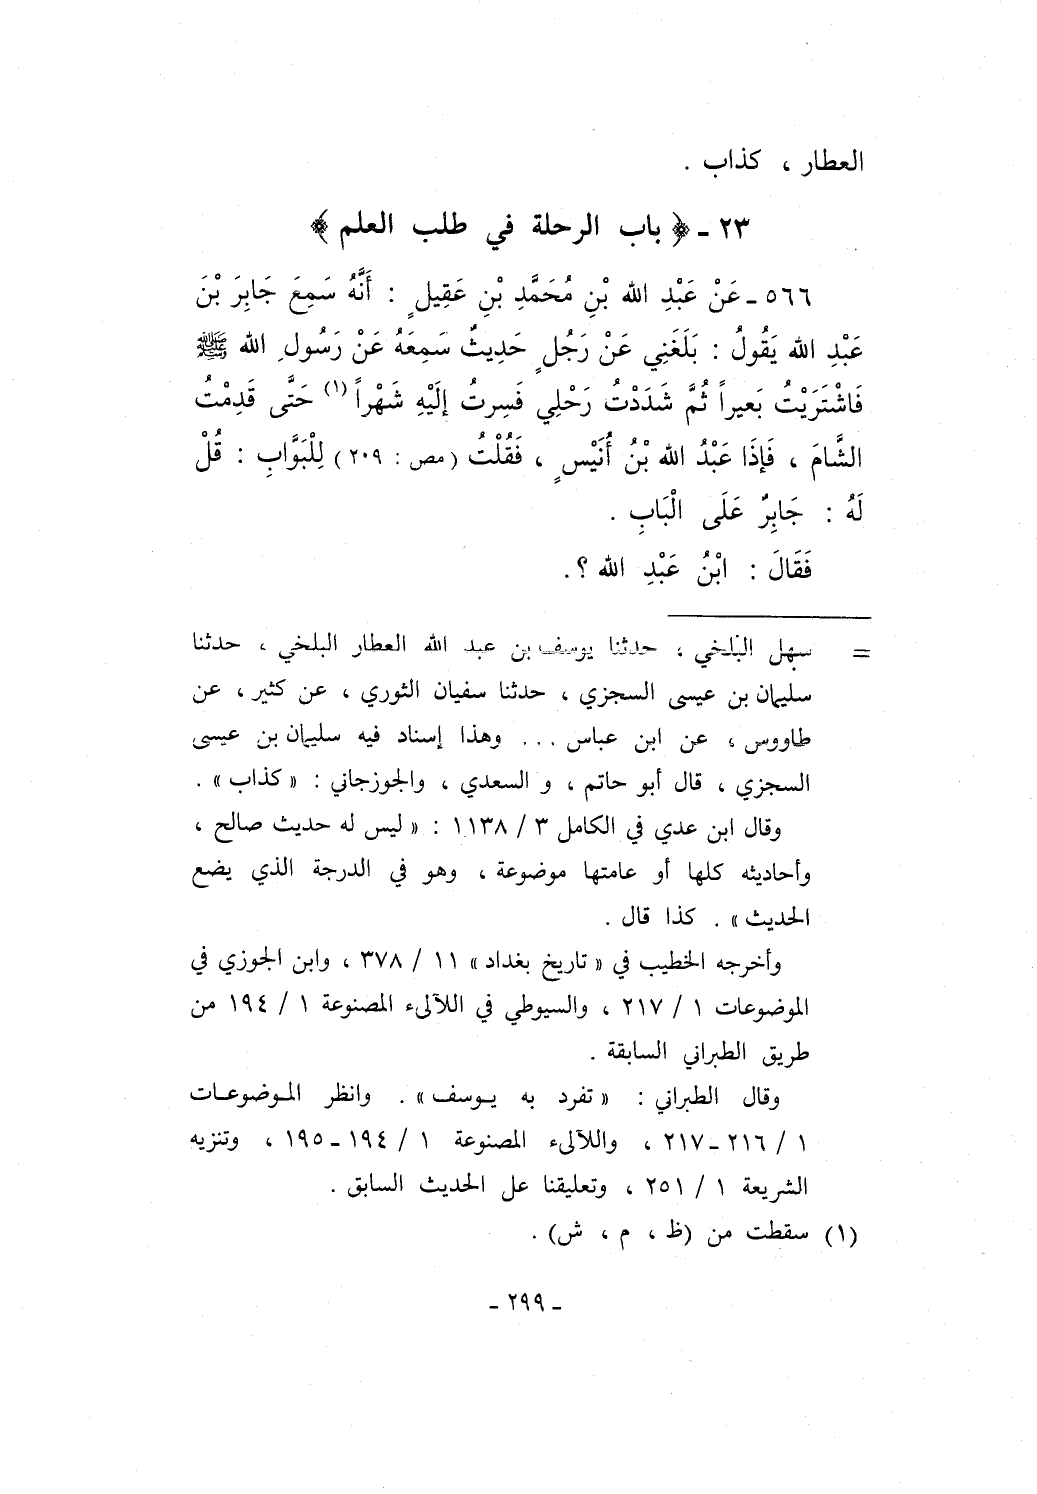 العطار ، كذاب .
٢٣ ـ ﴿ باب الرحلة في طلب العلم ﴾
٥٦٦ ـ عَنْ عَبْدِ الله بْنِ مُحَمَّدِ بْنِ عَقِيلٍ : أَنَّهُ سَمِعَ جَابِرَ بْنَ
عَبْدِ الله يَقُولُ : بَلَغَنِي عَنْ رَجُلٍ حَدِيثٌ سَمِعَهُ عَنْ رَسُولِ الله ﷺ
فَاشْتَرَيْتُ بَعيراً ثُمَّ شَدَدْتُ رَحْلِي فَسِرتُ إلَيْهِ شَهْراً (١) حَتَّى قَدِمْتُ
الشَّامَ ، فَإذَا عَبْدُ الله بْنُ أُنَيْسٍ ، فَقُلْتُ (مص : ٢٠٩) لِلْبَوَّابِ : قُلْ
لَهُ : جَابِرٌ عَلَى الْبَابِ .
فَقَالَ : ابْنُ عَبْدِ الله ؟.
= سهل البلخي ، حدثنا يوسف بن عبد الله العطار البلخي ، حدثنا
سليمان بن عيسى السجزي ، حدثنا سفيان الثوري ، عن كثير ، عن
طاووس ، عن ابن عباس ... وهذا إسناد فيه سليمان بن عيسى
السجزي ، قال أبو حاتم ، و السعدي ، والجوزجاني : « كذاب » .
وقال ابن عدي في الكامل ٣ / ١١٣٨ : « ليس له حديث صالح ،
وأحاديثه كلها أو عامتها موضوعة ، وهو في الدرجة الذي يضع
الحديث » . كذا قال .
وأخرجه الخطيب في « تاريخ بغداد » ١١ / ٣٧٨ ، وابن الجوزي في
الموضوعات ١ / ٢١٧ ، والسيوطي في اللآلىء المصنوعة ١ / ١٩٤ من
طريق الطبراني السابقة .
وقال الطبراني : « تفرد به يـوسف » . وانظر المـوضوعـات
١ / ٢١٦ ـ ٢١٧ ، واللآلىء المصنوعة ١ / ١٩٤ ـ ١٩٥ ، وتنزيه
الشريعة ١ / ٢٥١ ، وتعليقنا عل الحديث السابق .
(١) سقطت من (ظ ، م ، ش) .
ـ ٢٩٩ ـ